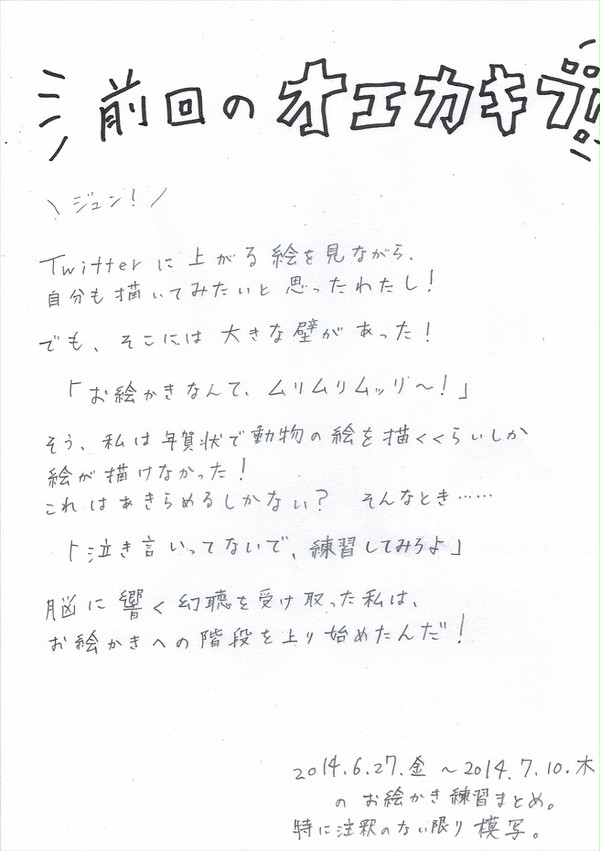 前回のオエカキブ
\ジュン!/
Twitterに上がる絵を見ながら、
自分も描いてみたいと思ったわたし!
でも、そこには大きな壁があった!
「お絵かきなんて、ムリムリムッリ〜!」
そう、私は年賀状で動物の絵を描くくらいしか
絵が描けなかった!
これはあきらめるしかない? そんなとき……
「泣き言いってないで、練習してみろよ」
脳に響く幻聴を受け取った私は、
お絵かきへの階段を上り始めたんだ!
2014.6.27.金 〜2014.7.10.木
のお絵かき練習まとめ。
特に注釈のない限り模写。